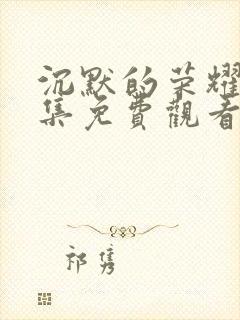 沉默的荣耀
集免費觀看
祁隽